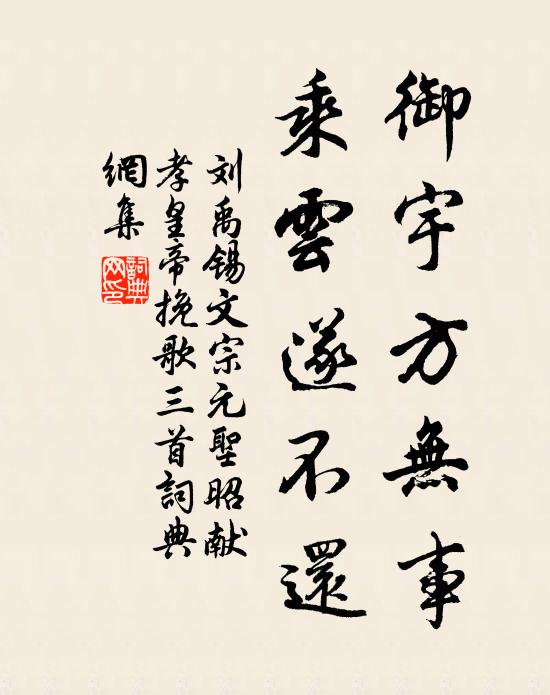 御宇方無事
乘雲遂不還
刘禹锡文宗元聖昭献
孝皇帝挽歌三首詞典
網集
詞典
网印